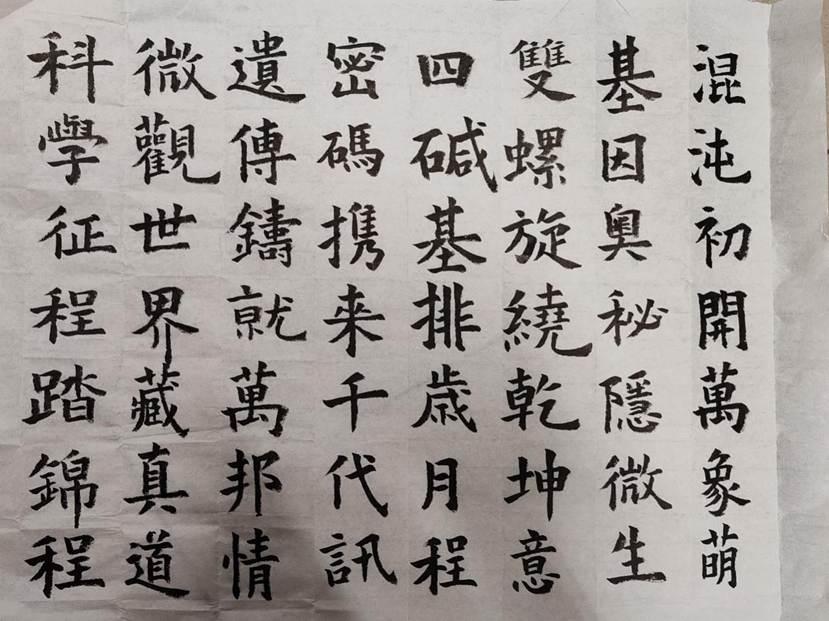 混沌初開萬象萌
基因奥秘隱微生
雙螺旋繞乾坤意
四碱基排歳月程
密碼携来千代訊
遺傳鑄就萬邦情
微觀世界藏真道
科學征程踏錦程